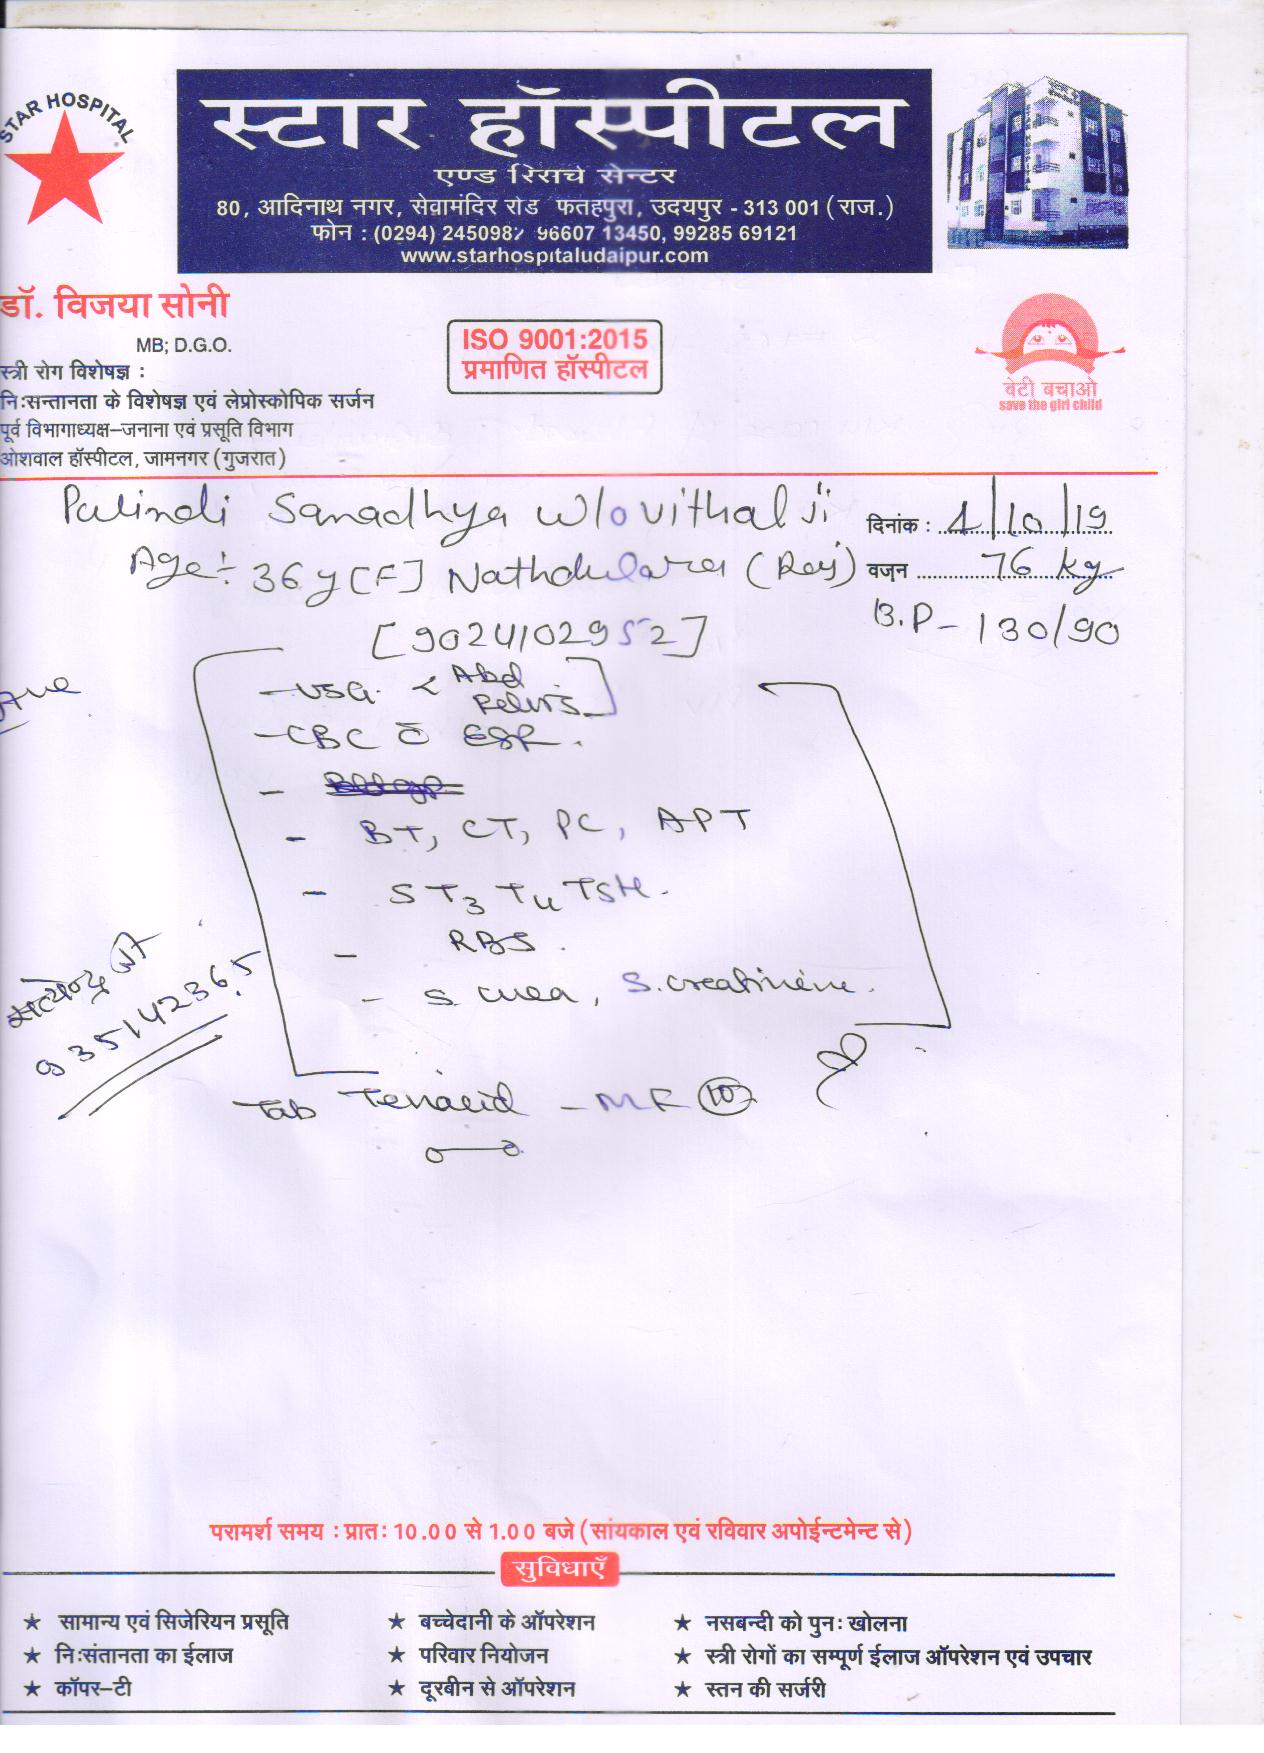 STAR HOSPITAL
स्टार हॉस्पीटल
एण्ड रिसर्च सेन्टर
80, आदिनाथ नगर, सेवामंदिर रोड फतहपुरा, उदयपुर - 313 001 (राज.)
फोन : (0294) 2450982 96607 13450, 99285 69121
www.starhospitaludaipur.com
डॉ. विजया सोनी
MB; D.G.O.
स्त्री रोग विशेषज्ञ :
नि:सन्तानता के विशेषज्ञ एवं लेप्रोस्कोपिक सर्जन
पूर्व विभागाध्यक्ष–जनाना एवं प्रसूति विभाग
ओशवाल हॉस्पीटल, जामनगर (गुजरात)
ISO 9001:2015
प्रमाणित हॉस्पीटल
बेटी बचाओ
save the girl child
Sanadhya w/o vithal ji
दिनांक : 1/10/19
Age :- 36 y [F] Nathdulara (Raj)
वज़न 76 kg
[9024102952]
B.P - 130/90
- USG < Abd
Pelvis
- CBC c̄ ESR.
- BT, CT, PC, APT
- S T3 T4 TSH.
- RBS.
- S. urea, S. creatinine.
सत्येन्द्र जी
9351142365
Tab - MF 10
परामर्श समय : प्रात: 10.00 से 1.00 बजे (सांयकाल एवं रविवार अपोईन्टमेन्ट से)
सुविधाएँ
★ सामान्य एवं सिजेरियन प्रसूति
★ नि:संतानता का ईलाज
★ कॉपर–टी
★ बच्चेदानी के ऑपरेशन
★ परिवार नियोजन
★ दूरबीन से ऑपरेशन
★ नसबन्दी को पुन: खोलना
★ स्त्री रोगों का सम्पूर्ण ईलाज ऑपरेशन एवं उपचार
★ स्तन की सर्जरी